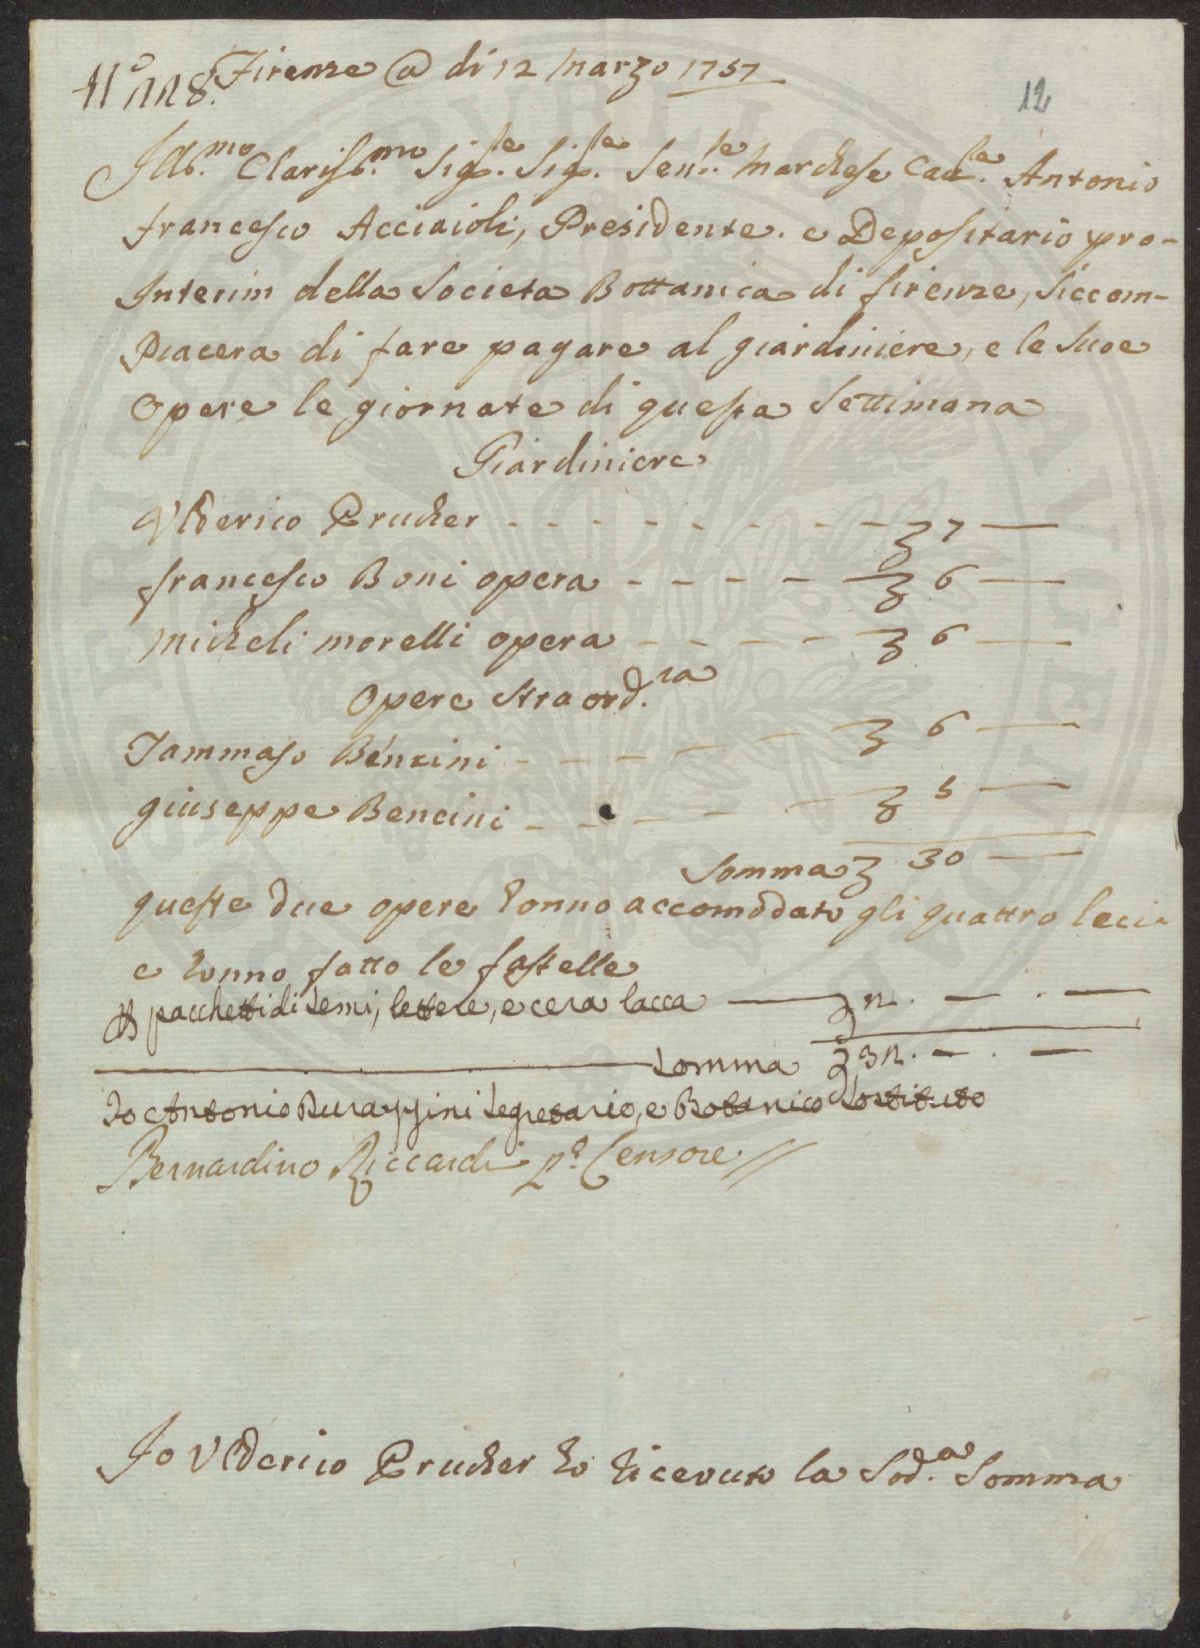 N.° 118. Firenze @ di 12 Marzo 1757
12
Ill.mo Clariss.mo Sig.re Sig.re Sen.re Marchese Cav.re Antonio
francesco Acciaioli, Presidente. e Depositario pro-
Interim della Societa Bottanica di firenze, Siccom-
Piacera di fare pagare al giardiniere, e le Suoe
Opere le giornate di questa Settimana
Giardiniere
Vlderico Prucher - - - - - - - - - 7 —
francesco Boni opera - - - - 6 —
Micheli morelli opera - - - - 6 —
Opere Straord.ria
Tammaso Bencini - - - - - - 6 —
giuseppe Bencini - - - - - 5 —
Somma 30 —
queste due opere honno accomodato gli quattro leci
e honno fatto le fastelle
pacchetti di Semi, lettere, e cera lacca — 2. — . —
Somma 32. — . —
Io Antonio Durazzini Segretario, e Botanico Sostituto
Bernardino Riccardi p.° Censore //
Io Vlderico Prucher ho riceuuto la Sod.a Somma